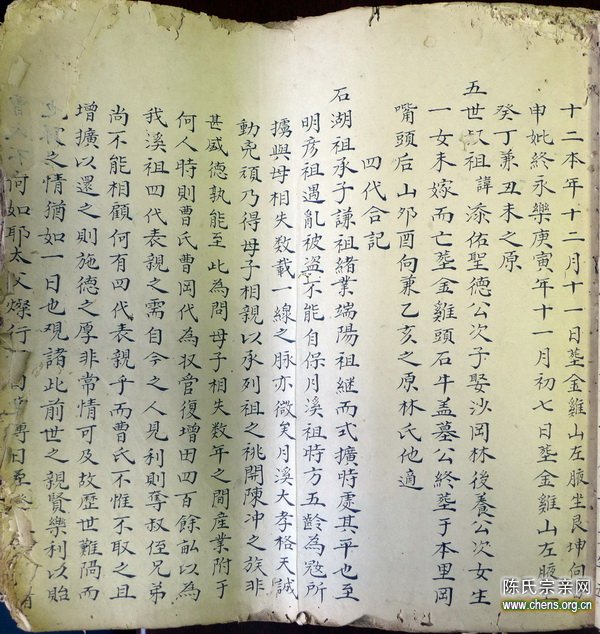 十二本年十二月十一日塟金雞山左腋坐艮坤向
申妣終永樂庚寅年十一月初七日塟金雞山左腋
癸丁兼丑未之原
五世叔祖諱添佑聖德公次子娶沙岡林後養公次女生
一女未嫁而亡塟金雞頭石牛盖墓公終塟于本里岡
嘴頭后山夘酉向兼乙亥之原林氏他適
四代合記
石湖祖承子謙祖緒業端陽祖継而式擴時處其平也至
明彦祖遇亂被盜不能自保月溪祖時方五齡為㓂所
擄與母相失数載一線之脉亦微矣月溪大孝格天誠
動兇頑乃得母子相親以承列祖之祧開陳冲之族非
甚盛德孰能至此為問母子相失数年之間産業附于
何人時則曹氏曹岡代為㧞管復增田四百餘畆以為
我溪祖四代表親之需自今之人見利則奪叔侄兄弟
尚不能相顧何有四代表親乎而曹氏不惟不取之且
增擴以還之則施德之厚非常情可及故歴世難隔而
之情猶如一日也覌諸此前世之親賢樂利以貽
何如耶太父燦行
陈氏宗亲网
www.chens.org.cn